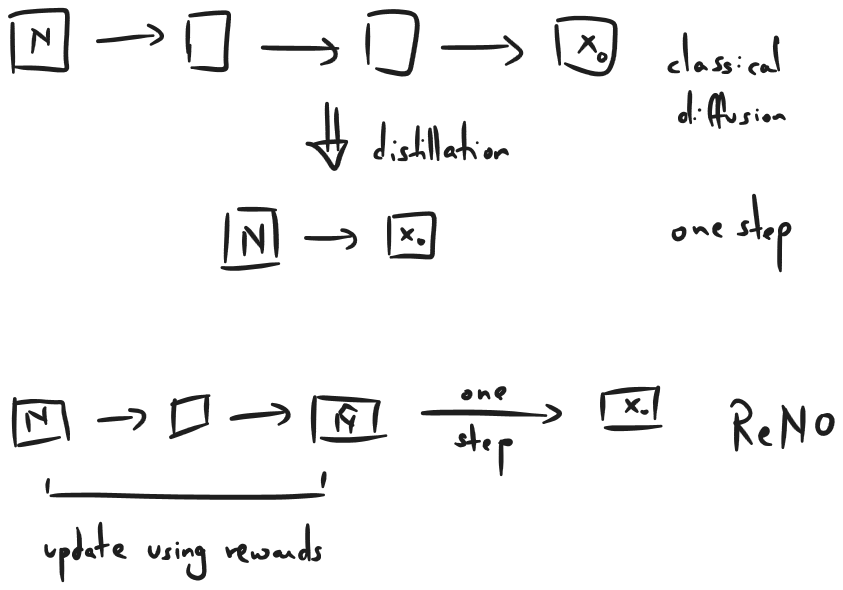 N
x₀
classical
diffusion
distillation
N
x₀
one step
N
Ñ
one
step
x₀
ReNO
update using rewards